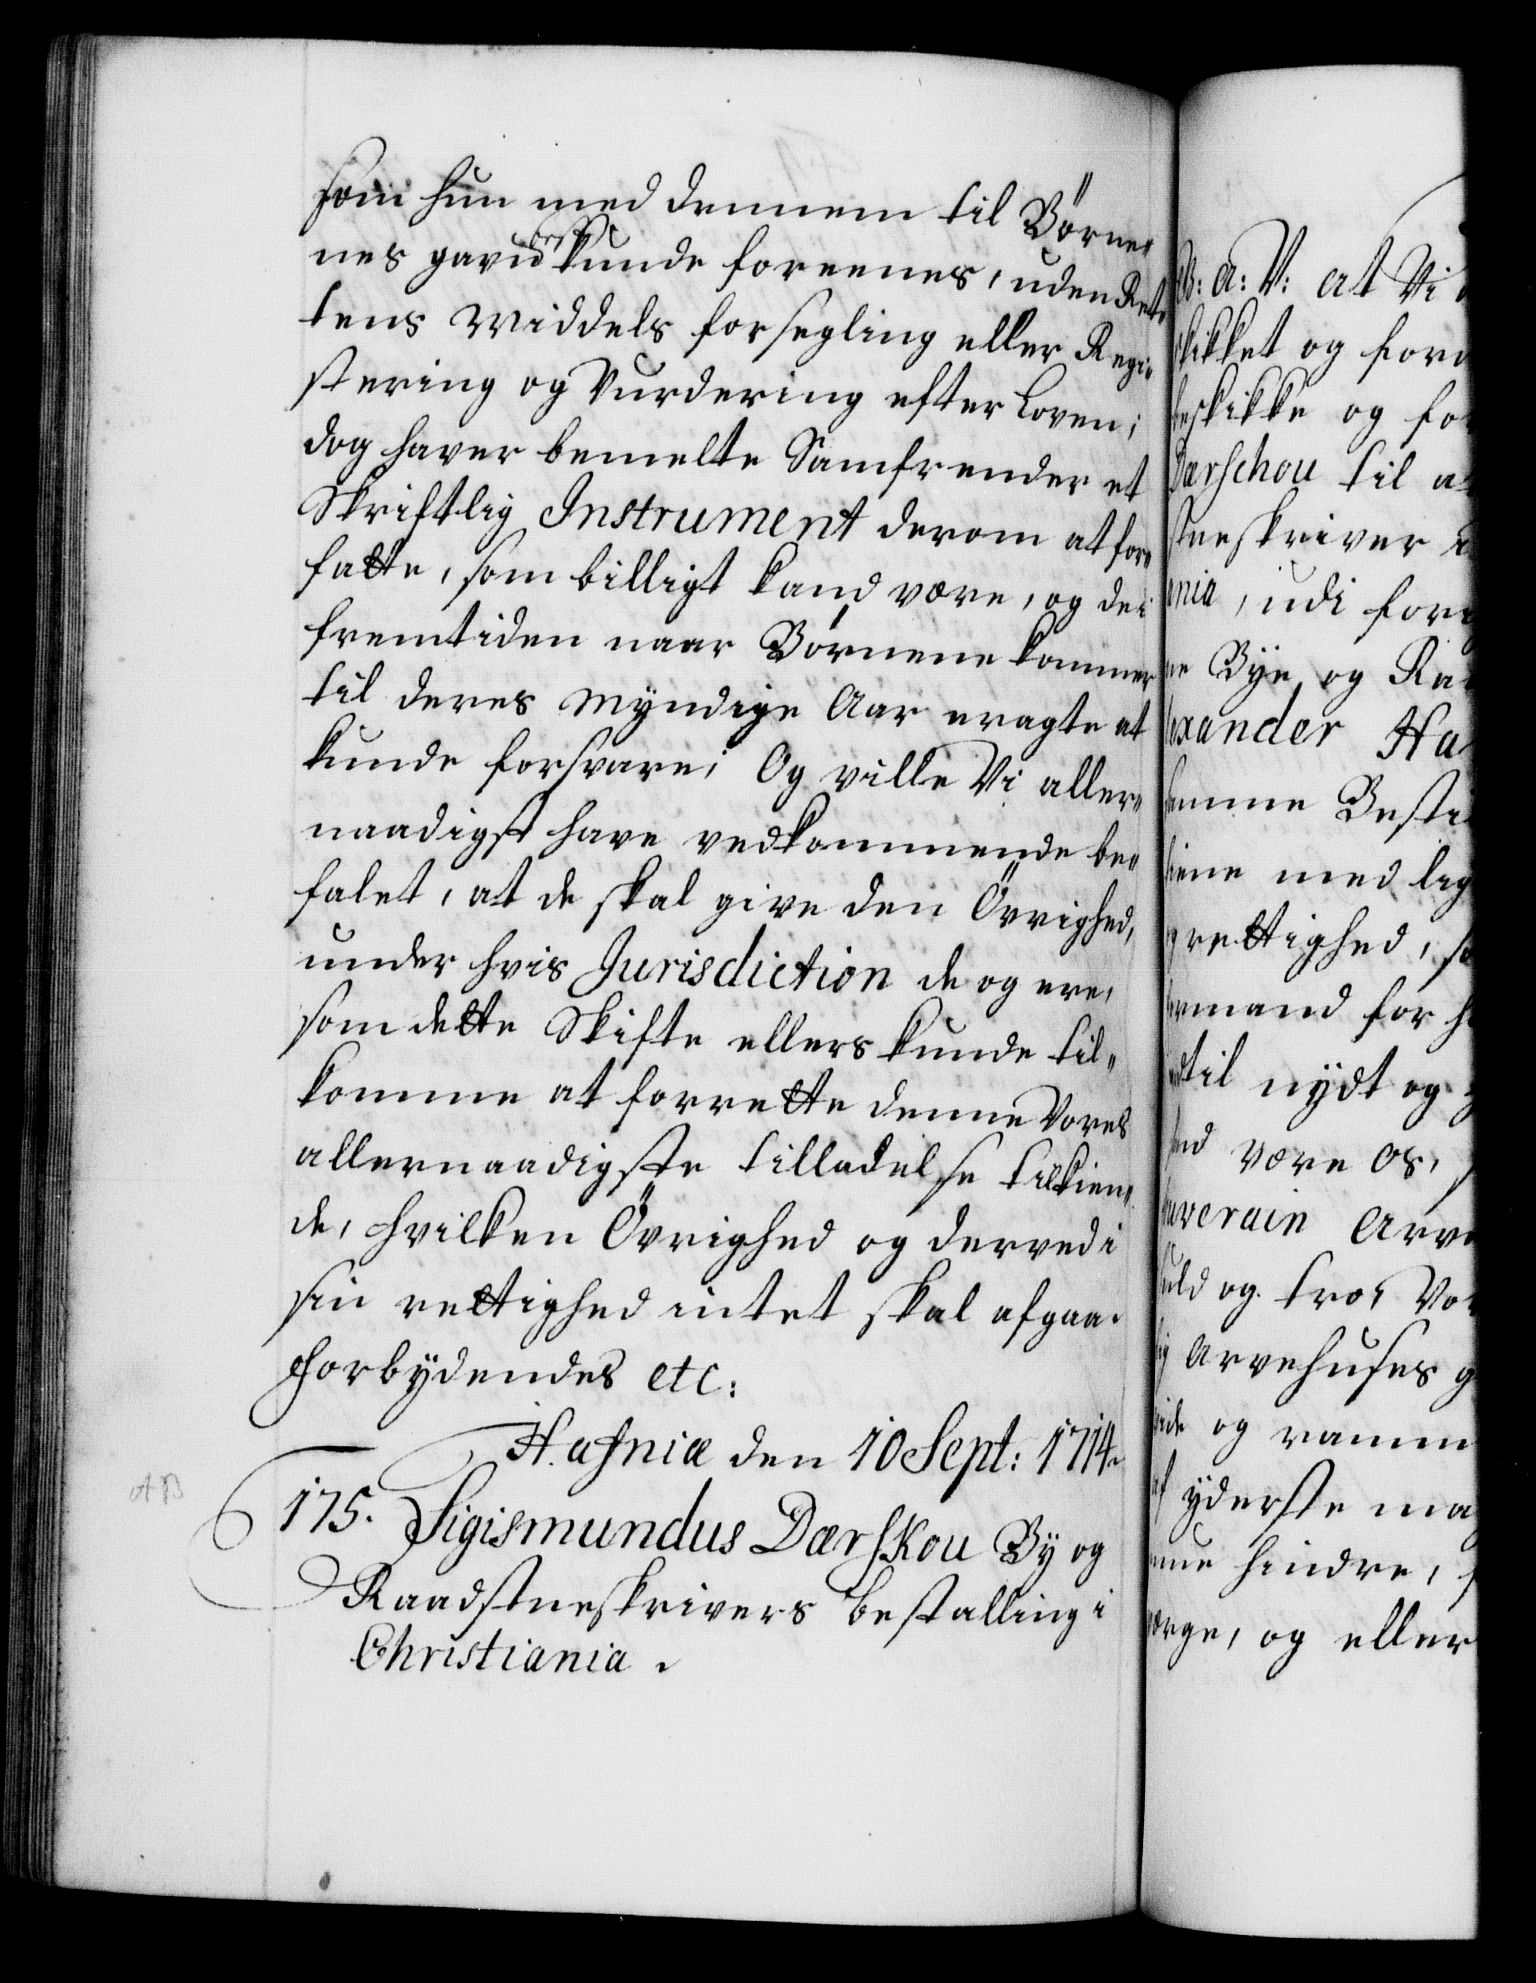 som hun med dennem til Börne„
nes gavn best kunde foreenes, uden Ret„
tens Middels forsegling eller Regi„
stering og Vurdering efter Loven;
dog haver bemelte Samfrender et
Skriftlig Instrument derom at for„
fatte, som billigt kand være, og de i
fremtiden naar Börnene kommer
til deres Myndige Aar eragte at
kunde forsvare; Og ville Vi aller„
naadigst have vedkommende be„
falet, at de skal give den Övrighed,
under hvis Jurisdiction de og ere,
som dette Skifte ellers kunde til„
komme at forrette denne Vores
allernaadigste tilladelse tilkien„
de, hvilken Övrighed og derved i
sin rettighed intet skal afgaa.
Forbydendes etc:
Hafniæ den 10 Sept: 1714.
175. Sigismundus Dærskou By og
Raadstueskrivers bestalling i
Christiania.
AB
G: A: V: at Vi
skikket og foro
beskikke og for
Dærschou til at
stueskriver i
ania, udi forrig
ne Bye og Ra
exander Ha
samme Besti
tiene med lig
rettighed, so
ermand for h
dtil nydt og
hed være os,
uverain Arve
uld og tro, Vor
lig Arvehuses g
vide og ramm
af yderste mag
nne hindre,
værge, og eller